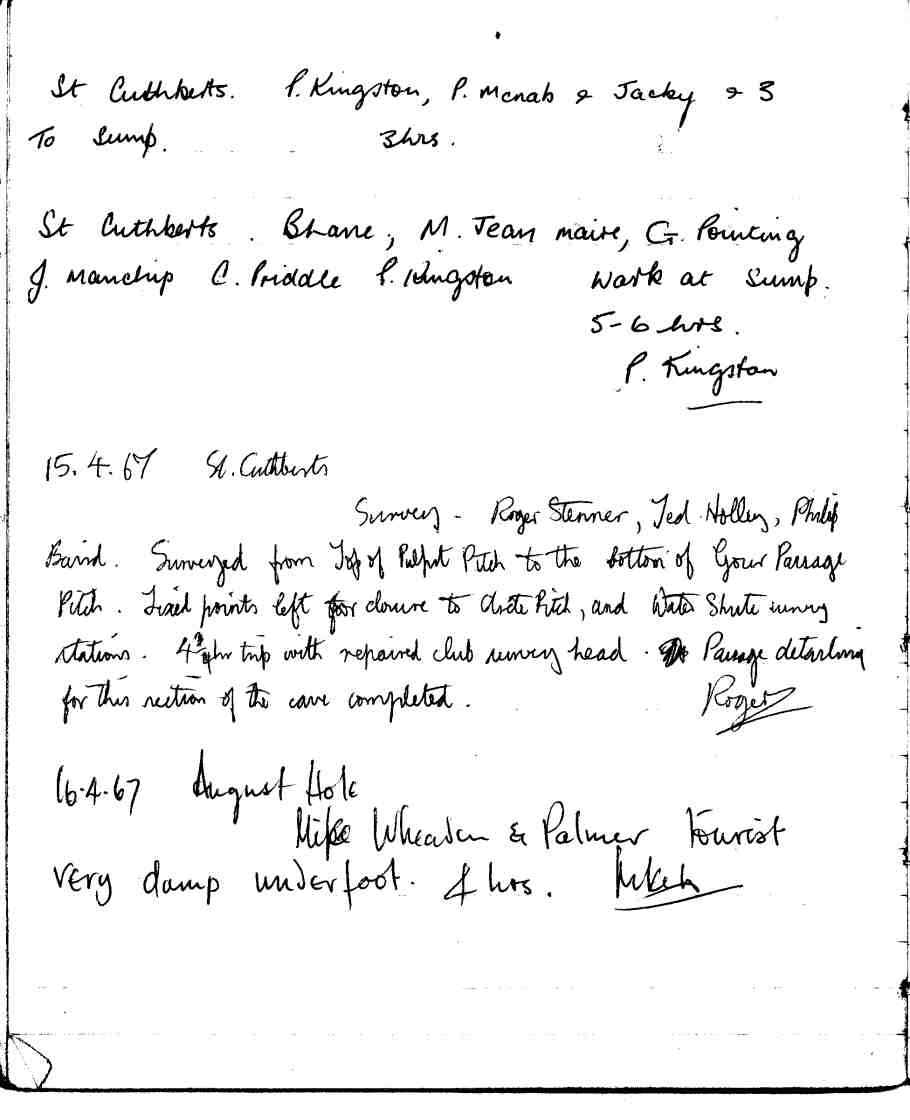 St Cuthberts. P. Kingston, P. Mcnab & Jacky & 3
To Sump. 3hrs.
St Cuthberts. M. Jean maire, G. Pointing
J. Manchip C. Priddle P. Kingston Work at Sump.
5-6 hrs.
P. Kingston
15.4.67 St. Cuthberts
Survey - Roger Stenner, Ted Holley, Philip
Baird. Surveyed from Top of Pulpit Pitch to the bottom of Gour Passage
Pitch. Fixed points left for closure to Arete Pitch, and Water Shute survey
stations. 4¾hr trip with repaired club survey head. Passage detailing
for this section of the cave completed. Roger
16.4.67 August Hole
Mike Wheadon & Palmer tourist
very damp underfoot. 4 hrs.